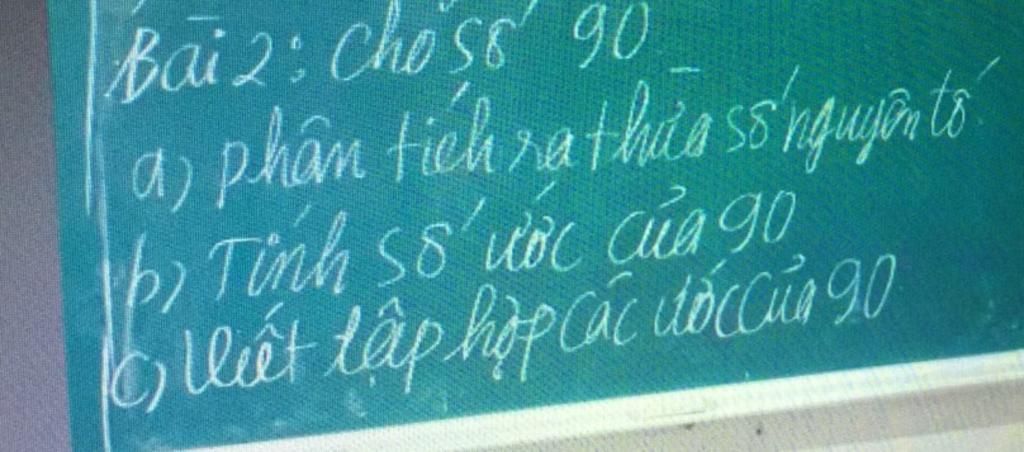 Bài 2: Cho số 90
a) phân tích ra thừa số nguyên tố
b) Tính số ước của 90
c) Viết tập hợp các ước của 90